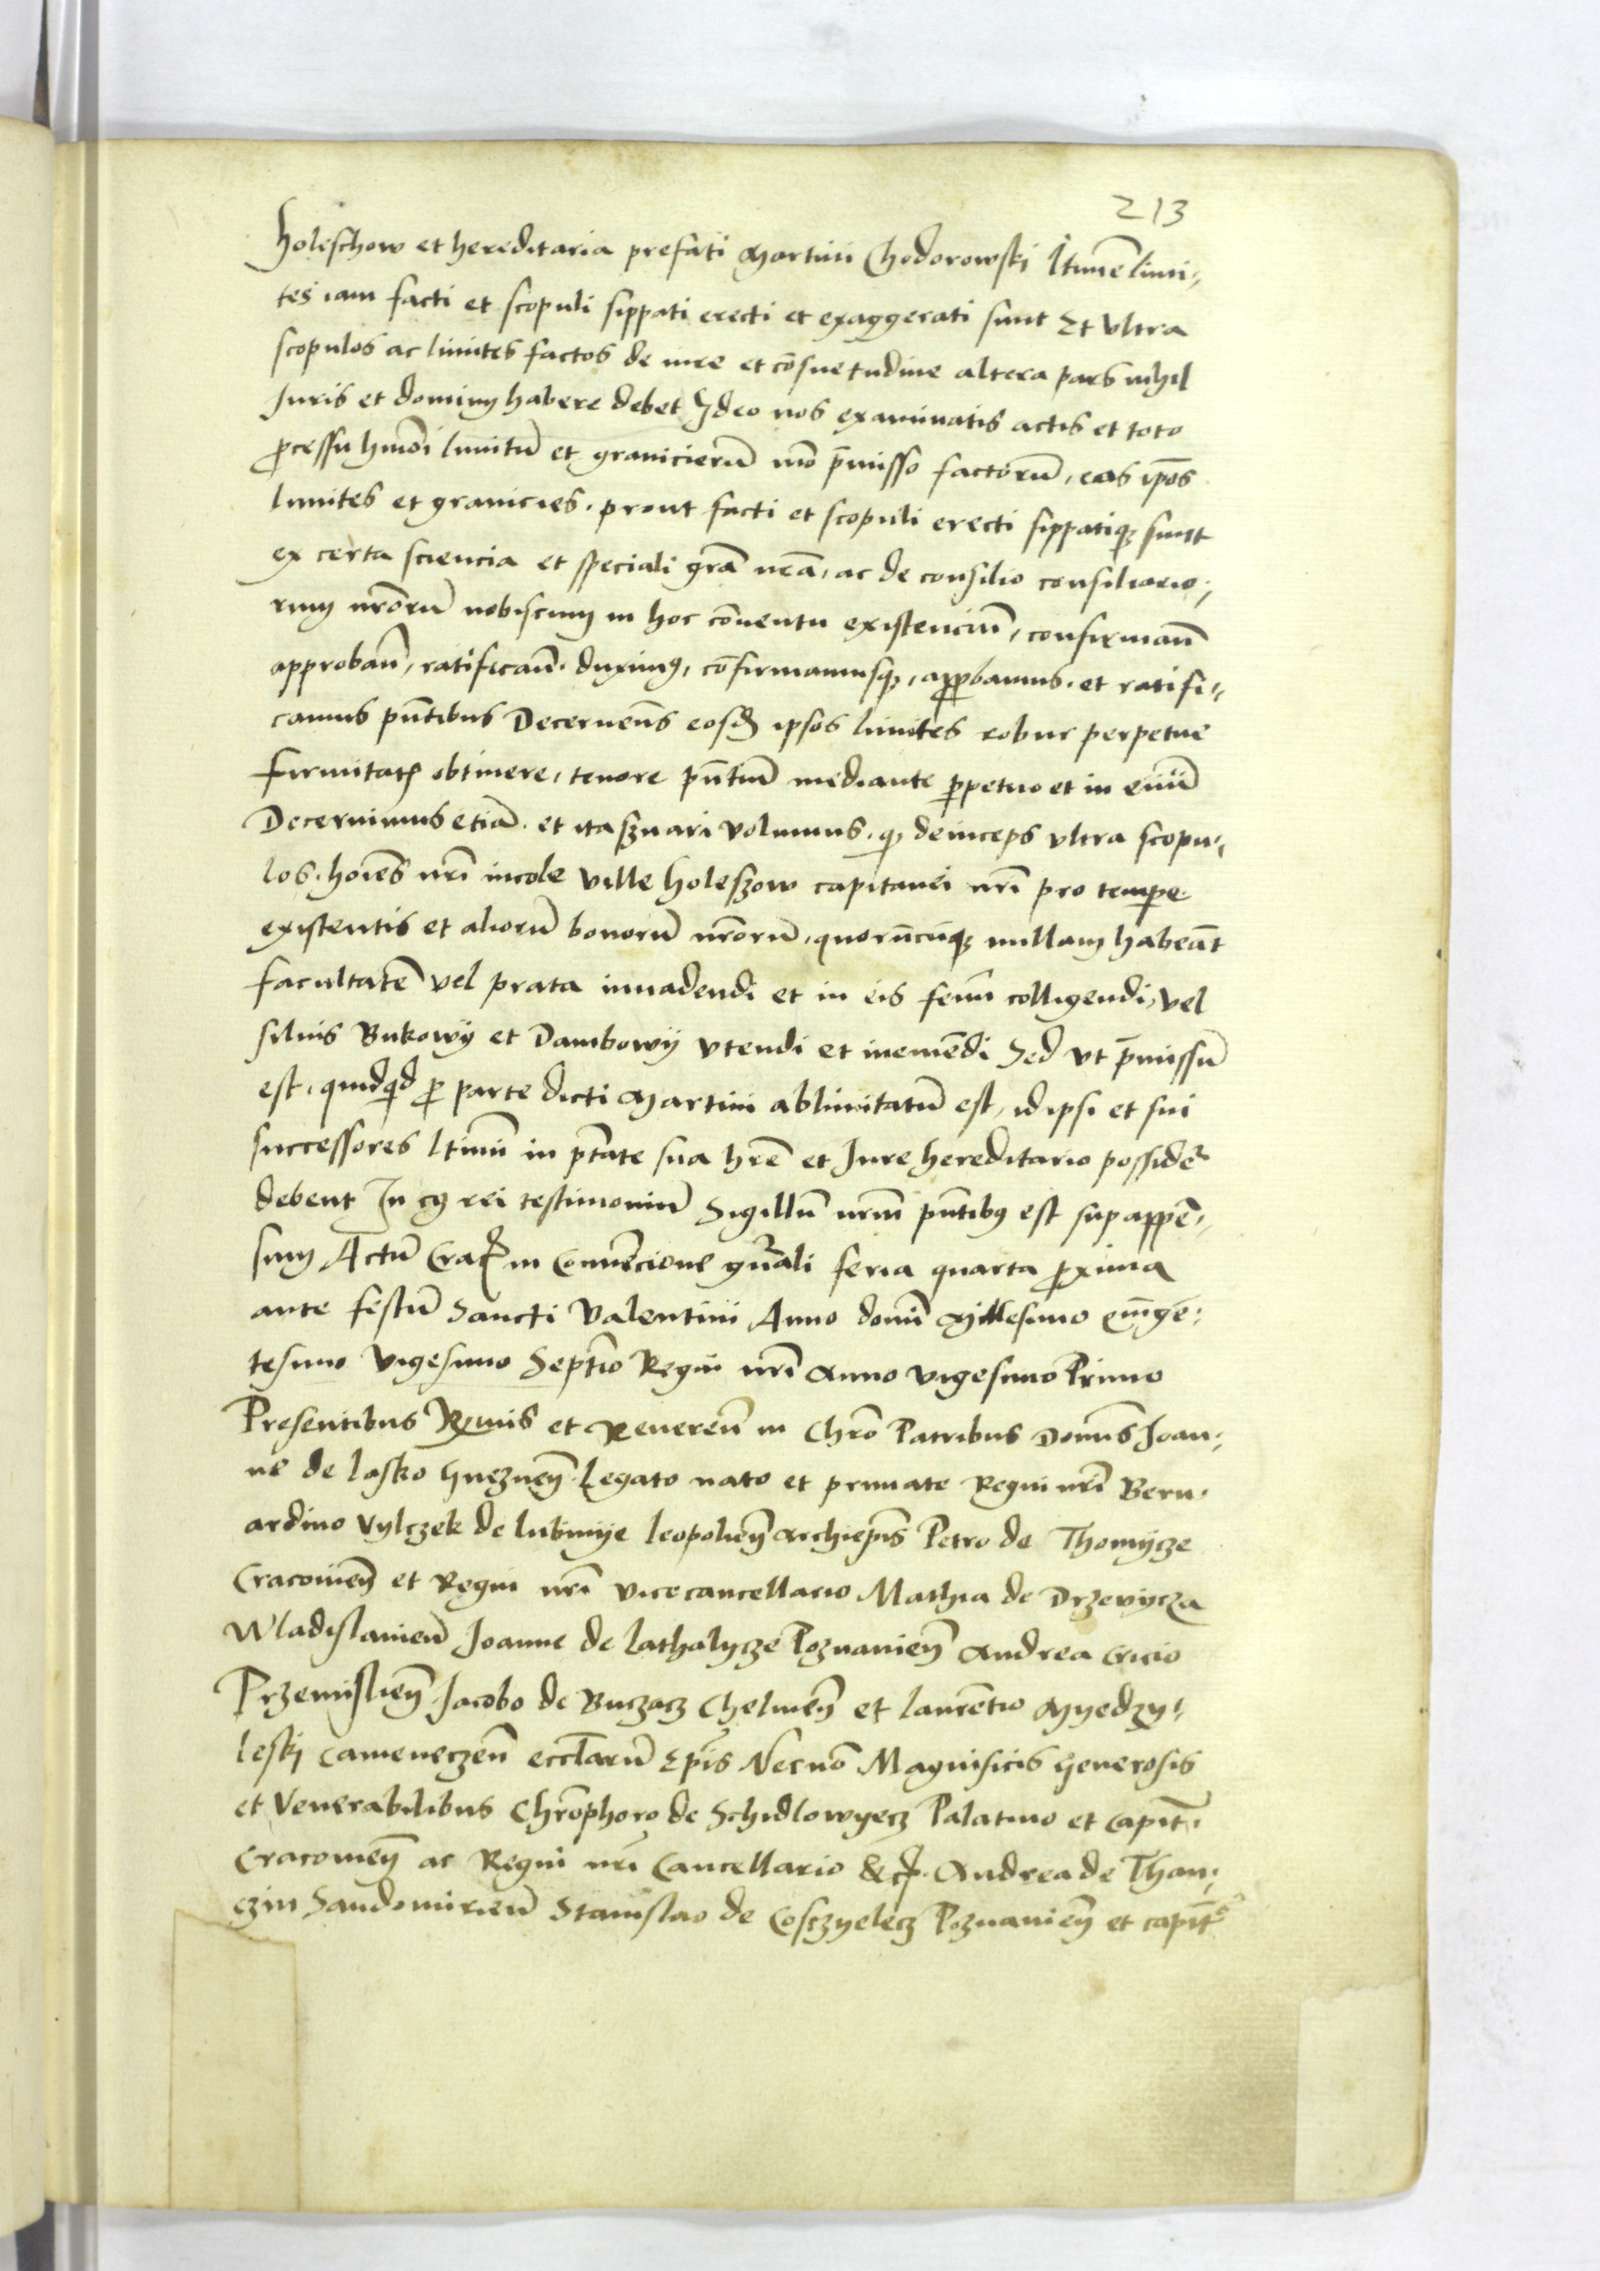 213
holeschow et hereditaria prefati Martini Chodorowski ltime limi,
tes iam facti et scopuli sippati erecti et exaggerati sunt Et vltra
scopulos ac limites factos de iure et cōsuetudine altera pars nihil
Juris et dominij habere debet Ideo nos examinatis actis et toto
ꝓcessu hmōi limitū et granicierū mō p̄misso factorū, eas ip̄os
limites et granicies. prout facti et scopuli erecti sippatiqꝫ sunt
ex certa sciencia et speciali grā nrā, ac de consilio consiliario,
rum nrōrū nobiscum in hoc cōuentu existenciū, confirmān̄
approban̄, ratifican̄. duximꝯ, cōfirmamusqꝫ, apꝓbamus. et ratifi,
camus pn̄tibus Decernen̄s eosdē ipsos limites robur perpetue
firmitatꝭ obtinere, tenore pn̄tiū mediante ꝑpetuo et in euū
Decernimus etiā. et ita ẜuari volumus. qꝫ deinceps vltra scopu,
los. hoiēs nrī incole ville holeszow capitanei nrī pro tempe
existentis et aliorū bonorū nrōrū, quorūcūqꝫ nullam habeāt
facultatē vel prata inuadendi et in eis fenū colligendi, vel
siluis Bukowij et Dambowij vtendi et ineūdi Sed vt p̄missū
est, quidqd ꝓ parte dicti Martini ablimitatū est, id ipsi et sui
successores ltimi in ptāte sua hrē et Jure hereditario possidē
debent In cꝯ rei testimoniū Sigillū nrm̄ pn̄tibꝯ est supappē,
sum Actū Crac̄ in Conuēcione gn̄ali feria quarta ꝓxima
ante festū Sancti Valentini Anno domī Millesimo Quīgē,
tesimo Vigesimo Septīo Regni nrī Anno vigesimo Primo
Presentibus Rm̄is et Reueren̄ in Chrō Patribus Domīs Joan,
ne de Lasko Gneznen̄ Legato nato et primate Regni nrī Bern,
ardino Vylczek de Lubinije Leopolien̄ Archiep̄is Petro de Thomijcze
Cracouien̄ et Regni nrī vicecancellario Mathia de Drzevycza
Wladislauien̄ Joanne de Lathalycze Poznanien̄ Andrea Cricio
Przemislien̄ Jacobo de Buczacz Chelmen̄ et Laurētio Myedzy,
leskj Cameneczen̄ eccl̄arū Ep̄is Necnō Magnificis Generosis
et Venerabilibus Chrōphoro de Schidlowyecz Palatino et Capit̄.
Cracouien̄ ac Regni nrī Cancellario &c. Andrea de Than,
czin Sandomirien̄ Stanislao de Cosczyelecz Poznanien̄ et capit̄